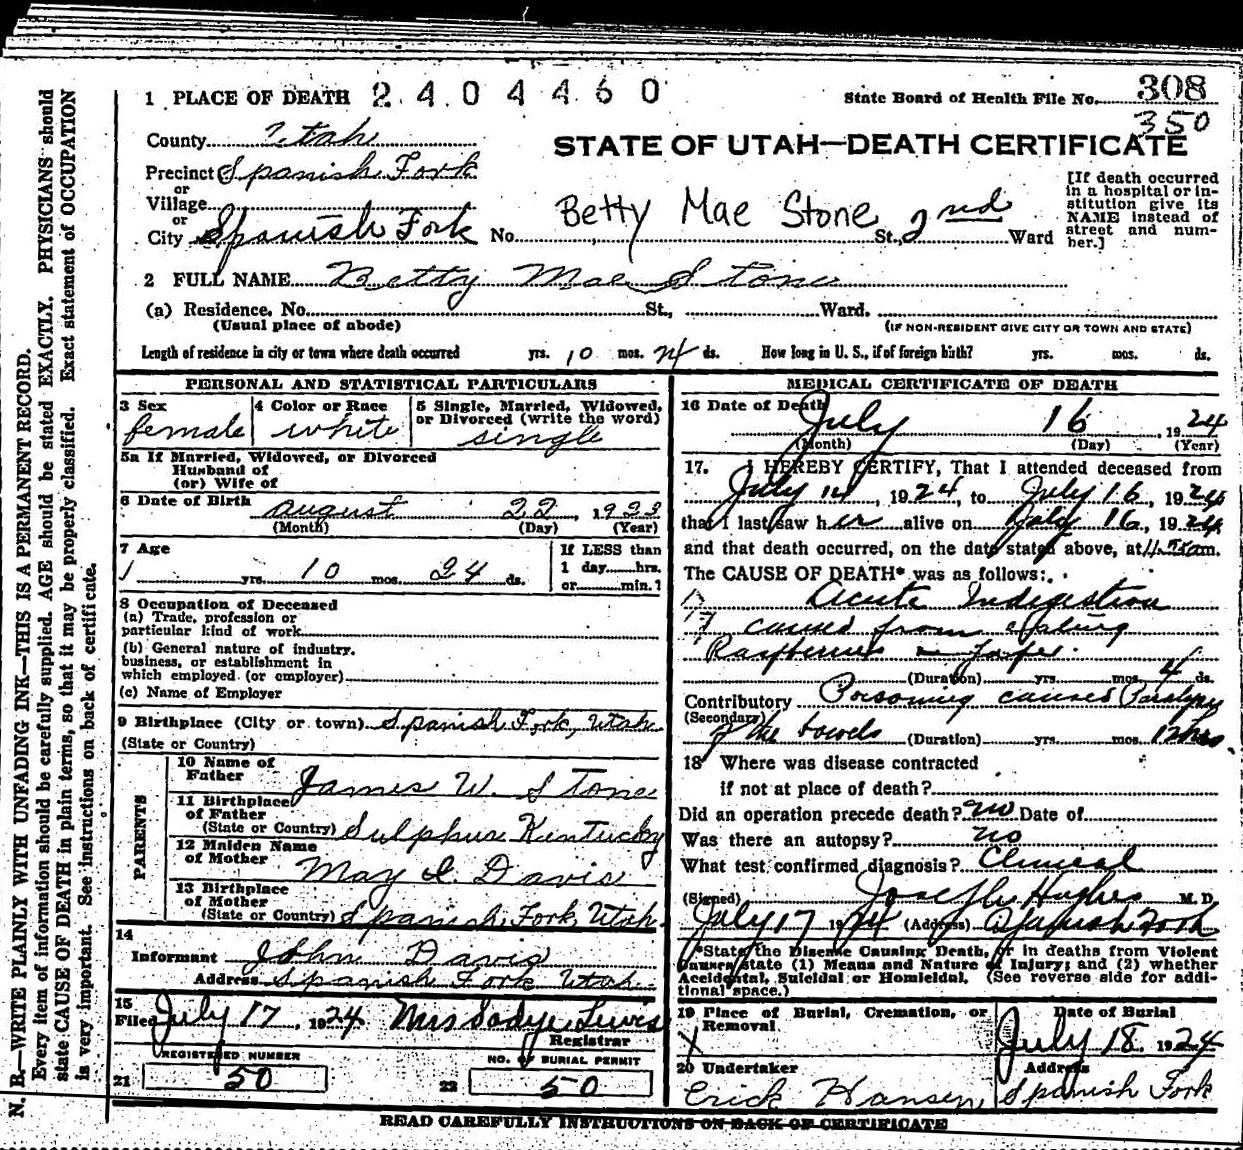 1 PLACE OF DEATH 2404460
State Board of Health File No. 308
350
County Utah
STATE OF UTAH—DEATH CERTIFICATE
Precinct Spanish Fork
or
Village
or
City Spanish Fork No. Betty Mae Stone St., 2nd Ward
[If death occurred
in a hospital or in-
stitution give its
NAME instead of
street and num-
ber.]
2 FULL NAME Betty Mae Stone
(a) Residence. No. St., Ward.
(Usual place of abode)
(IF NON-RESIDENT GIVE CITY OR TOWN AND STATE)
Length of residence in city or town where death occurred yrs. 10 mos. 24 ds. How long in U. S., if of foreign birth? yrs. mos. ds.
PERSONAL AND STATISTICAL PARTICULARS
3 Sex
female
4 Color or Race
white
5 Single, Married, Widowed,
or Divorced (write the word)
single
5a If Married, Widowed, or Divorced
Husband of
(or) Wife of
6 Date of Birth August 22, 1923
(Month) (Day) (Year)
7 Age
1 yrs. 10 mos. 24 ds.
If LESS than
1 day hrs.
or min.?
8 Occupation of Deceased
(a) Trade, profession or
particular kind of work
(b) General nature of industry,
business, or establishment in
which employed (or employer)
(c) Name of Employer
9 Birthplace (City or town) Spanish Fork, Utah
(State or Country)
PARENTS
10 Name of
Father James W. Stone
11 Birthplace
of Father
(State or Country) Sulphur Kentucky
12 Maiden Name
of Mother May I. Davis
13 Birthplace
of Mother
(State or Country) Spanish Fork Utah
14
Informant John Davis
Address Spanish Fork Utah
15
Filed July 17, 1924 Mrs Sadye Lewis
Registrar
REGISTERED NUMBER
21 50
NO. OF BURIAL PERMIT
22 50
MEDICAL CERTIFICATE OF DEATH
16 Date of Death July 16, 1924
(Month) (Day) (Year)
17. I HEREBY CERTIFY, That I attended deceased from
July 14, 1924, to July 16, 1924
that I last saw her alive on July 16, 1924
and that death occurred, on the date stated above, at m.
The CAUSE OF DEATH* was as follows:
Acute Indigestion
caused from eating
Raspberries
(Duration) yrs. mos. 4 ds.
Contributory Poisoning caused Paralysis
(Secondary)
of the bowels (Duration) yrs. mos. 12 hrs.
18 Where was disease contracted
if not at place of death?
Did an operation precede death? no Date of
Was there an autopsy? no
What test confirmed diagnosis? Clinical
(Signed) Joseph Hughes M. D.
July 17 1924 (Address) Spanish Fork
*State the Disease Causing Death, or in deaths from Violent
Causes, state (1) Means and Nature of Injury; and (2) whether
Accidental, Suicidal or Homicidal. (See reverse side for addi-
tional space.)
19 Place of Burial, Cremation, or
Removal
X
Date of Burial
July 18. 1924
20 Undertaker
Erick Hansen
Address
Spanish Fork
READ CAREFULLY INSTRUCTIONS ON BACK OF CERTIFICATE
N. B.—WRITE PLAINLY WITH UNFADING INK—THIS IS A PERMANENT RECORD.
Every item of information should be carefully supplied. AGE should be stated EXACTLY. PHYSICIANS should
state CAUSE OF DEATH in plain terms, so that it may be properly classified. Exact statement of OCCUPATION
is very important. See instructions on back of certificate.